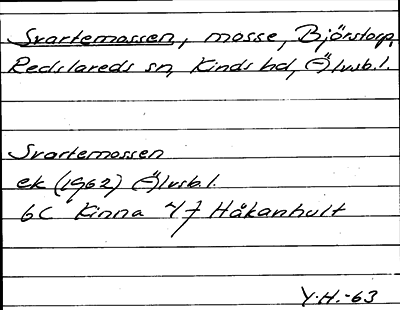 Svartemossen, mosse, Björstorp,
Redslareds sn, Kinds hd, Älvsb.l.
Svartemossen
ek (1962) Älvsb.l.
6C Kinna 4 f Håkanhult
Y.H.-63